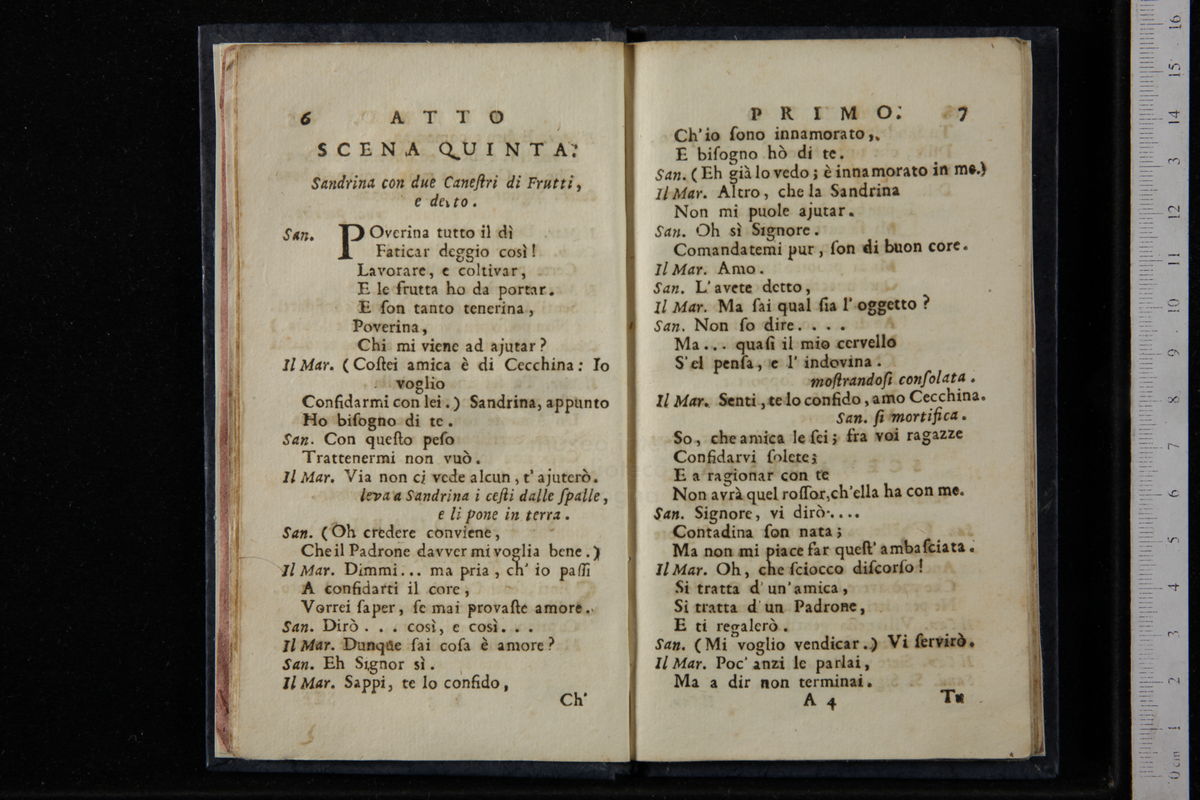 6 ATTO
SCENA QUINTA.
Sandrina con due Caneſtri di Frutti,
e detto.
San. POverina tutto il dì
Faticar deggio così!
Lavorare, e coltivar,
E le frutta ho da portar.
E ſon tanto tenerina,
Poverina,
Chi mi viene ad ajutar?
Il Mar. (Coſtei amica è di Cecchina: Io
voglio
Confidarmi con lei.) Sandrina, appunto
Ho biſogno di te.
San. Con queſto peſo
Trattenermi non vuò.
Il Mar. Via non ci vede alcun, t'ajuterò.
leva a Sandrina i ceſti dalle ſpalle,
e li pone in terra.
San. (Oh credere conviene,
Che il Padrone davver mi voglia bene.)
Il Mar. Dimmi... ma pria, ch' io paſſi
A confidarti il core,
Vorrei ſaper, ſe mai provaſte amore.
San. Dirò . . . così, e così. . .
Il Mar. Dunque ſai coſa è amore?
San. Eh Signor sì.
Il Mar. Sappi, te lo confido,
Ch'
PRIMO. 7
Ch'io ſono innamorato,
E biſogno hò di te.
San. (Eh già lo vedo; è innamorato in me.)
Il Mar. Altro, che la Sandrina
Non mi puole ajutar.
San. Oh sì Signore.
Comandatemi pur, ſon di buon core.
Il Mar. Amo.
San. L'avete detto,
Il Mar. Ma ſai qual ſia l' oggetto?
San. Non ſo dire. . . .
Ma... quaſi il mio cervello
S'el penſa, e l' indovina.
moſtrandoſi conſolata.
Il Mar. Senti, te lo confido, amo Cecchina.
San. ſi mortifica.
So, che amica le ſei; fra voi ragazze
Confidarvi ſolete;
E a ragionar con te
Non avrà quel roſſor, ch'ella ha con me.
San. Signore, vi dirò....
Contadina ſon nata;
Ma non mi piace far queſt' ambaſciata.
Il Mar. Oh, che ſciocco diſcorſo!
Si tratta d'un'amica,
Si tratta d'un Padrone,
E ti regalerò.
San. (Mi voglio vendicar.) Vi ſervirò.
Il Mar. Poc' anzi le parlai,
Ma a dir non terminai.
A 4 Tu
16
15
14
13
12
11
10
9
8
7
6
5
4
3
2
1
0 cm